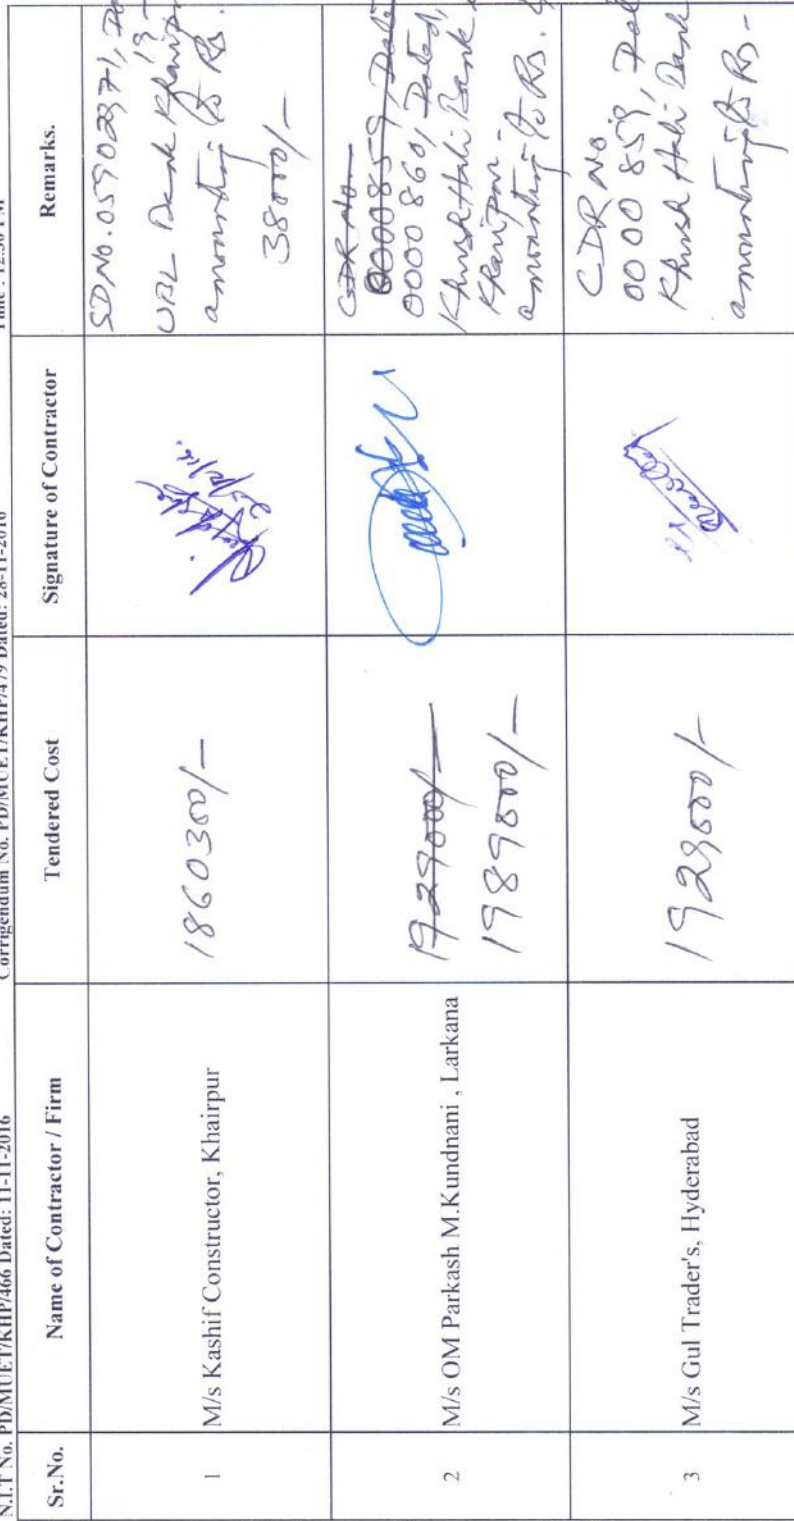 N.I.T No. PD/MUET/KHP/466 Dated: 11-11-2016 Corrigendum No. PD/MUET/KHP/479 Dated: 28-11-2016 Time : 12:30 PM
Sr.No. Name of Contractor / Firm Tendered Cost Signature of Contractor Remarks.
1 M/s Kashif Constructor, Khairpur 1860300/-
SD No. 05902971,
UBL Bank Khairpur
amounting to Rs.
38000/-
2 M/s OM Parkash M.Kundnani , Larkana 1929000/-
1989500/-
CDR No
0000859, Dated
0000860, Dated,
Khush Hali Bank
Khairpur
amounting to Rs.
3 M/s Gul Trader's, Hyderabad 1929500/-
CDR No
0000859,
Khush Hali Bank
amounting to Rs-